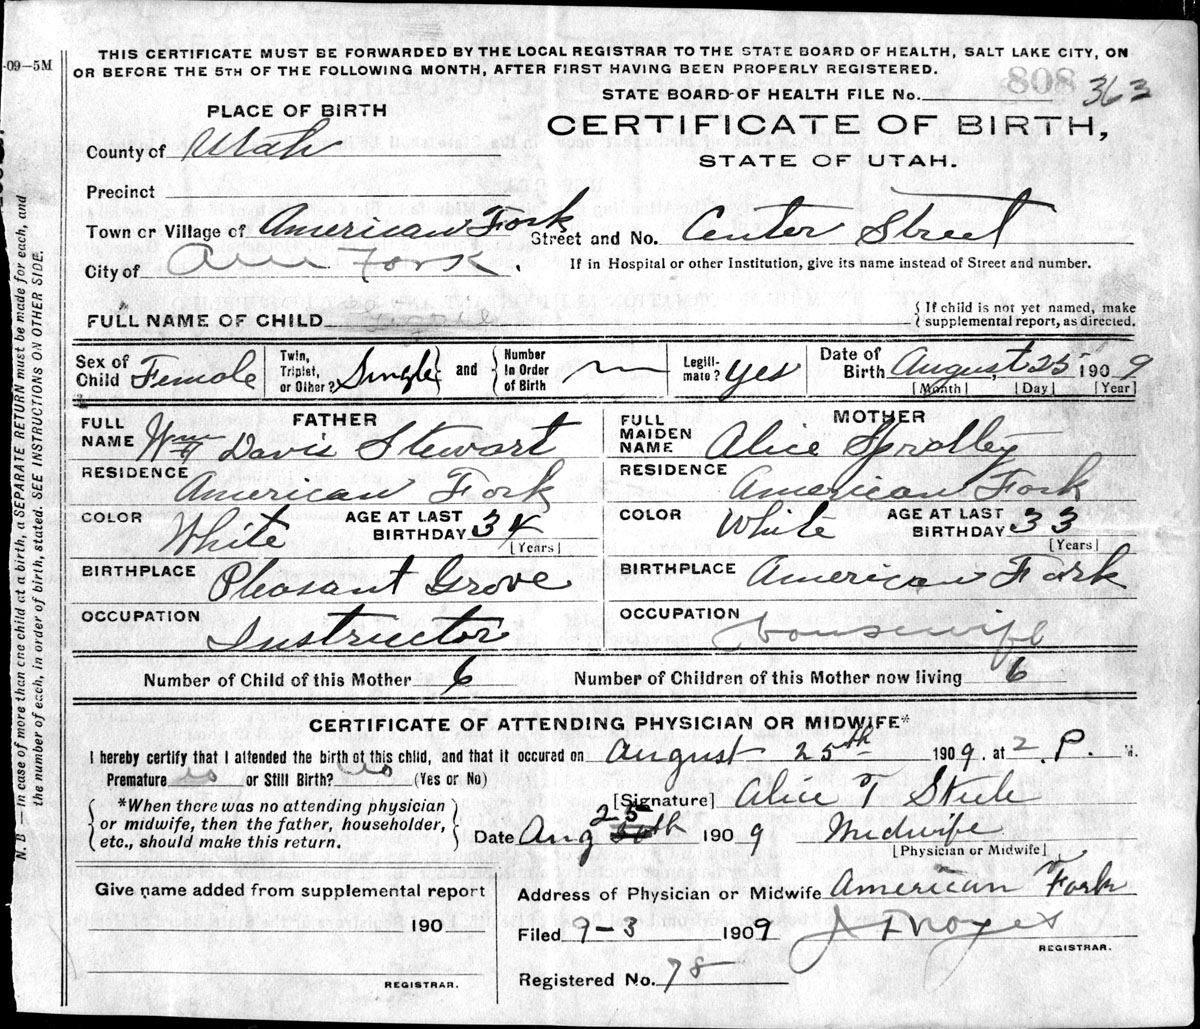 THIS CERTIFICATE MUST BE FORWARDED BY THE LOCAL REGISTRAR TO THE STATE BOARD OF HEALTH, SALT LAKE CITY, ON
OR BEFORE THE 5TH OF THE FOLLOWING MONTH, AFTER FIRST HAVING BEEN PROPERLY REGISTERED.
-09-5M
STATE BOARD OF HEALTH FILE No. 363
808
PLACE OF BIRTH
CERTIFICATE OF BIRTH,
STATE OF UTAH.
County of Utah
Precinct
Town or Village of American Fork Street and No. Center Street
City of Am Fork. If in Hospital or other Institution, give its name instead of Street and number.
FULL NAME OF CHILD { If child is not yet named, make
supplemental report, as directed.
Sex of Child Female Twin, Triplet, or Other? Single and Number in Order of Birth Legitimate? yes Date of Birth August 25 1909
[Month] [Day] [Year]
FATHER MOTHER
FULL NAME Wm Davis Stewart FULL MAIDEN NAME Alice Spratley
RESIDENCE American Fork RESIDENCE American Fork
COLOR White AGE AT LAST BIRTHDAY 34 [Years] COLOR White AGE AT LAST BIRTHDAY 33 [Years]
BIRTHPLACE Pleasant Grove BIRTHPLACE American Fork
OCCUPATION Instructor OCCUPATION housewife
Number of Child of this Mother 6 Number of Children of this Mother now living 6
CERTIFICATE OF ATTENDING PHYSICIAN OR MIDWIFE*
I hereby certify that I attended the birth of this child, and that it occured on August 25th 1909. at 2 P. M.
Premature no or Still Birth? no (Yes or No)
*When there was no attending physician
or midwife, then the father, householder,
etc., should make this return.
[Signature] Alice T Steele
Date Aug 25th 1909 Midwife
[Physician or Midwife]
Give name added from supplemental report
190
REGISTRAR.
Address of Physician or Midwife American Fork
Filed 9-3 1909 J F Noyes
REGISTRAR.
Registered No. 78
N. B — In case of more than one child at a birth, a SEPARATE RETURN must be made for each, and
the number of each, in order of birth, stated. SEE INSTRUCTIONS ON OTHER SIDE.